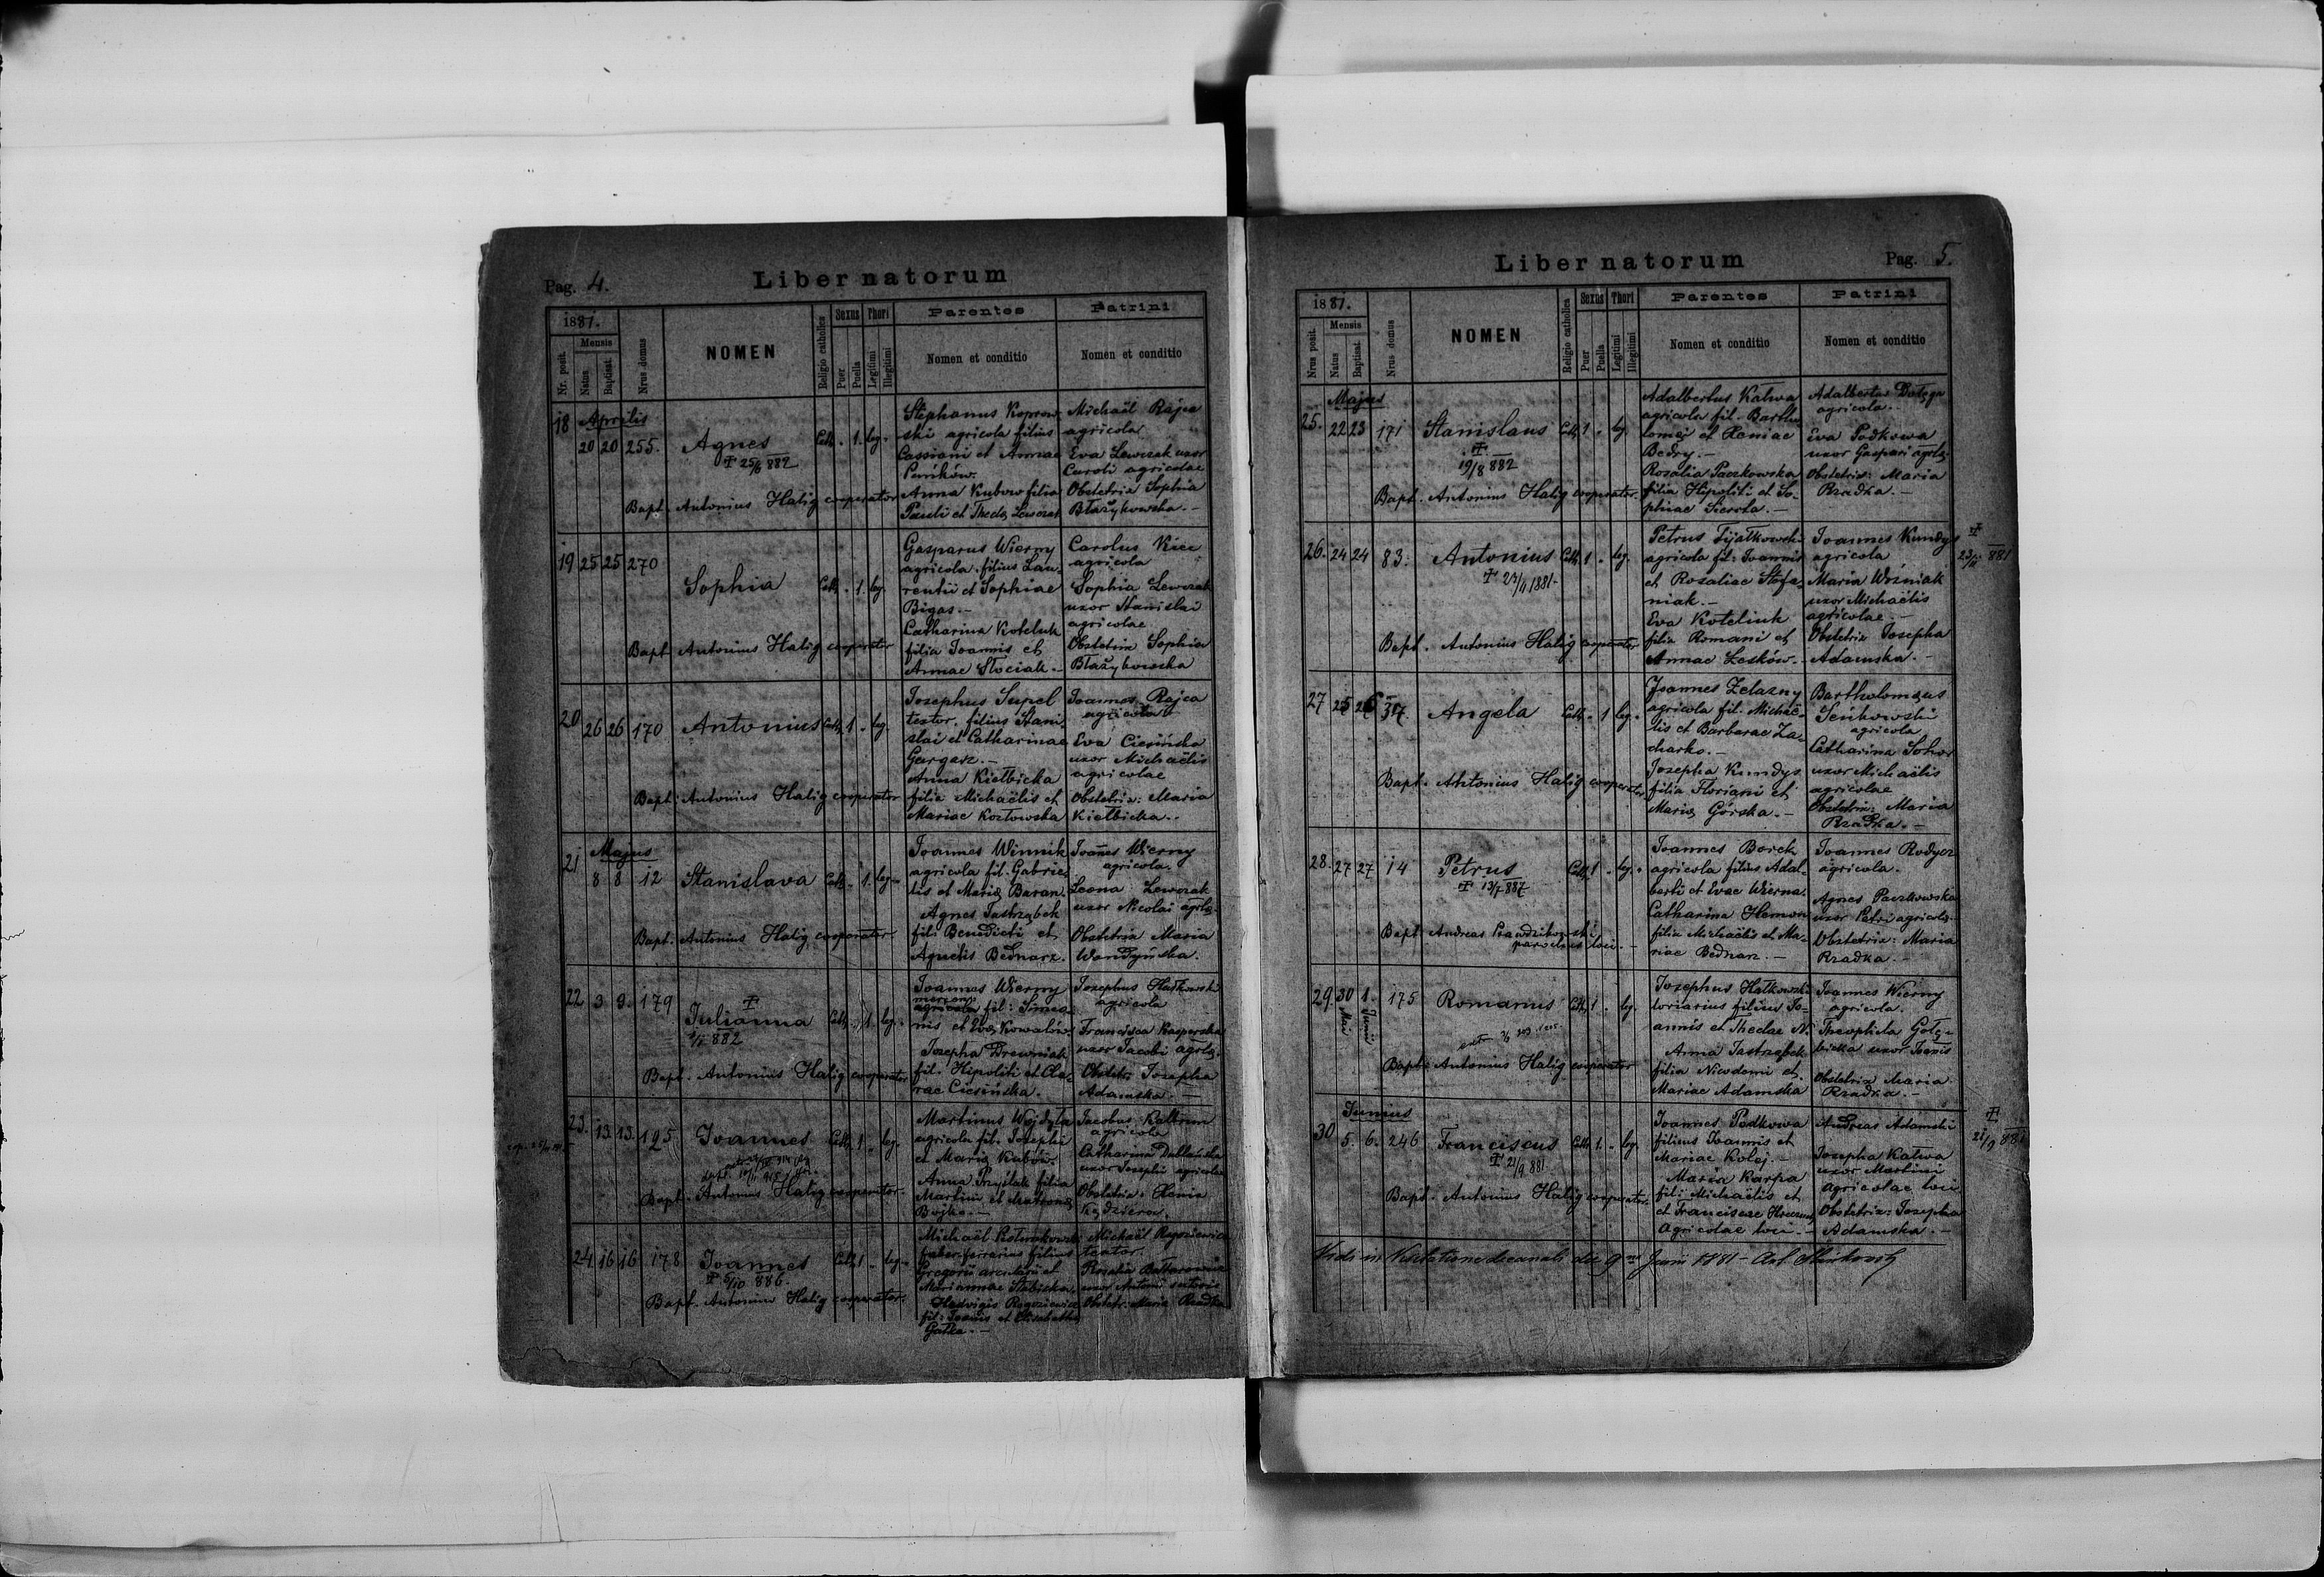 Pag. 4.
Liber natorum
1881.
Nr. posit.
Mensis
Natus
Baptisat.
Nrus domus
NOMEN
Religio catholica
Sexus
Puer
Puella
Thori
Legitimi
Illegitimi
Parentes
Nomen et conditio
Patrini
Nomen et conditio
18 Aprilis
20 20 255. Agnes Cath. „ 1. leg.
Ŧ 25/6 882
Bapt. Antonius Halig cooperator
Stephanus Koprow-
ski agricola filius
Cassiani et Annae
Anna Kubow filia
Pauli et Theclę Lewczak
Michaël Rajca
agricola
Eva Lewczak uxor
Caroli agricolae
Obstetrix Sophia
Błażykowska.-
19 25 25 270
Sophia Cath. „ 1. leg.
Bapt Antonius Halig cooperator
Gasparus Wierny
agricola filius Lau-
rentii et Sophiae
Bigas.-
Catharina Koteluk
filia Joannis et
Annae Stociak.-
Carolus Kice
agricola
Sophia Lewczak
uxor Stanislai
agricolae
Obstetrix Sophia
Błażykowska
20 26 26 170 Antonius Cath. 1 „ leg.
Bapt: Antonius Halig cooperator
Josephus Supel
textor. filius Stani
slai et Catharinae
Gargarz.-
Anna Kiełbicka
filia Michaëlis et
Mariae Kozłowska
Joannes Rajca
agricola
Eva Ciesińska
uxor Michaëlis
agricolae
Obstetrix: Maria
Kiełbicka..
21 Majus
8 8 12 Stanislava Cath. „ 1. leg.
Bapt: Antonius Halig cooperator
Joannes Winnik
agricola fil. Gabrie-
lis et Marię Baran.
Agnes Jastrząbek
fil: Benedicti et
Agnetis Bednarz.
Joanes Wierny
agricola.
Leona Lewczak
uxor Nicolai agrlę.
Obstetrix Maria
Wandyńska.
22 3 3. 179 Ŧ
Julianna Cath. „ 1. leg.
882
Bapt. Antonius Halig cooperator
Joannes Wierny
agricola fil: Simeo-
nis et Evę Kowalów
Josepha Drewniak
fil. Hipoliti et Cla-
rae Ciesińska.
Josephus Hałkowski
agricola
Francisca Kasperska
uxor Jacobi agrlę.
Obstetr. Josepha
Adamska.-
23. 13. 13. 195 Joannes Cath. 1 „ leg.
Bapt. Antonius Halig cooperator.
Martinus Wojdyła
agricola fil. Josephi
et Marię Kubów.
Anna Przyślak filia
Martini et Matronę
Bojko.-
Jacobus Kaltrun
agricola
Catharina
uxor Josephi agricolae
Obstetrix: Xenia
Kędzierz.
24 16 16 178 Joannes Cath. 1 „ leg.
Ŧ 5/10 886.
Bapt. Antonius Halig cooperator.
Michaël
faber ferrarius filius
Gregorii arcularii et
Mariannae Słabicka
Hedvigis Rogoziewicz
fil: Joanis et Elisabethę
Gałka.-
Michaël Rogoziewicz
textor.
Rosalia
uxor Antoni sutoris
Obstetr: Maria Rzadka
Liber natorum
Pag. 5.
1881.
Nrus posit.
Mensis
Natus
Baptisat.
Nrus domus
NOMEN
Religio catholica
Sexus
Puer
Puella
Thori
Legitimi
Illegitimi
Parentes
Nomen et conditio
Patrini
Nomen et conditio
Majus
25. 22 23 171 Stanislaus Cath. 1 „ leg.
Ŧ
19/8 882
Bapt. Antonius Halig cooperator.
Adalbertus Katwa
agricola fil. Bartho
lomęi et Xeniae
Bedry.-
Rosalia Paczkowska
filia Hipoliti et So-
phiae Sierota.-
Adalbertus Dołęga
agricola.-
Eva Podkowa
uxor Gaspari agrlę.
Obstetrix: Maria
Rzadka.-
26. 24 24 83. Antonius Cath. 1 „ leg.
Ŧ 23/11 1881.
Bapt. Antonius Halig cooperator
Petrus Fijałkowski
agricola fil: Joannis
et Rosaliae Stefa-
niak.-
Eva Koteliuk
filia Romani et
Annae Lesków.-
Joannes Kundys
agricola
Maria Wozniak
uxor Michaëlis
agricolae.-
Obstetrix Josepha
Adamska.-
Ŧ
23/11 881
27 25 26 37. Angela Cath. „ 1 leg.
Bapt. Antonius Halig cooperator
Joannes Zelazny
agricola fil. Michaë-
lis et Barbarae Za-
charko.-
Josepha Kundys
filia Floriani et
Marię Górska.-
Bartholomęus
Seńkowski
agricola
Catharina Sokor
uxor Michaëlis
agricolae
Obstetrix: Maria
Rzadka.-
28. 27 27 14 Petrus Cath. 1 „ leg.
Ŧ 13/7 887
Bapt Andreas
parochus loci.-
Joannes Borek
agricola filius Adal-
berti et Evae Wierna.
Catharina Hemon
filia Michaëlis et Ma-
riae Bednarz.-
Joannes Rodycz
agricola.
Agnes Paczkowska
uxor Petri agricolę.
Obstetrix: Maria
Rzadka.-
29. 30 1. 175 Romanus Cath. 1 „ leg.
Mai Junii
Bapt: Antonius Halig cooperator
Josephus Hałkowski
filius Jo-
annis et Theclae N.
Anna Jastrząbek
filia Nicodemi et
Mariae Adamska
Joannes Wierny
agricola.
Theophila Gołę-
bicka uxor Joanis
Obstetrix Maria
Rzadka.-
Junius
30 5. 6. 246 Franciscus Cath. 1. „ leg.
Ŧ 21/9 881
Bapt. Antonius Halig cooperator.
Joannes Podkowa
filius Joannis et
Mariae Kolej.-
Maria Karpa
fil: Michaëlis et
et Franciscae
agricolae loci-
Andreas Adamski
Josepha Katwa
uxor Martini
agricolae loci
Obstetrix: Josepha
Adamska.-
Ŧ
21/9 881
Vidi in Visitatione decanali die 9na Junii 1881 -